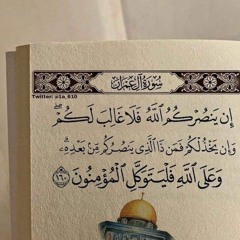 سُورَةُ آلِ عِمْرَان
Twitter: @1a_610
إِن يَنصُرْكُمُ ٱللَّهُ فَلَا غَالِبَ لَكُمْ ۖ
وَإِن يَخْذُلْكُمْ فَمَن ذَا ٱلَّذِى يَنصُرُكُم مِّنۢ بَعْدِهِۦ ۗ
وَعَلَى ٱللَّهِ فَلْيَتَوَكَّلِ ٱلْمُؤْمِنُونَ ١٦٠